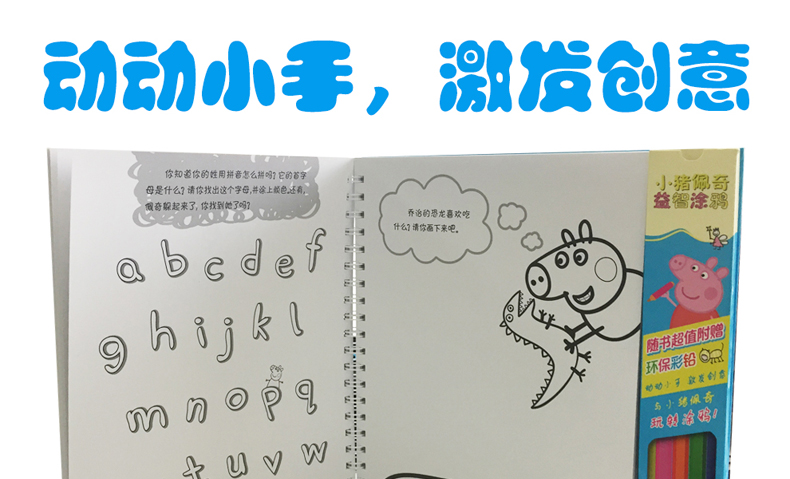 动动小手，激发创意
你知道你的姓用拼音怎么拼吗？它的首字
母是什么？请你找出这个字母，并涂上颜色。还有，
佩奇躲起来了，你找到她了吗？
a b c d e f
g h i j k l
m n o p q
t u v w
乔治的恐龙喜欢吃
什么？请你画下来吧。
小猪佩奇
益智涂鸦
随书超值附赠
环保彩铅
动动小手 激发创意
与小猪佩奇
玩转涂鸦！